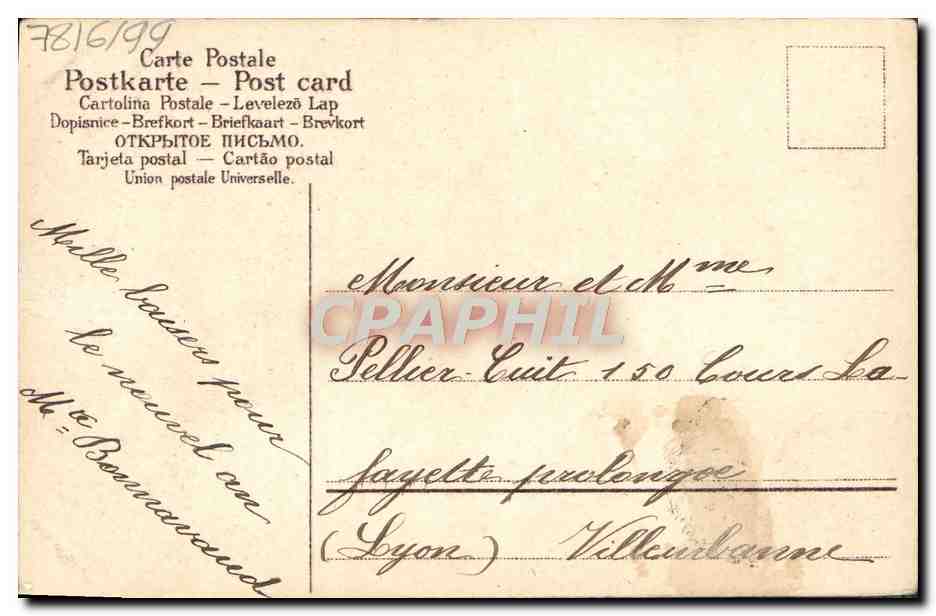 78/6/99
Carte Postale
Postkarte — Post card
Cartolina Postale – Levelező Lap
Dopisnice – Brefkort – Briefkaart – Brevkort
ОТКРЫТОЕ ПИСЬМО.
Tarjeta postal — Cartão postal
Union postale Universelle.
Mille baisers pour
le nouvel an
Mce Bonnavaud
Monsieur et Mme
CPAPHIL
Pellier-Cuit 150 Cours La-
fayette prolongée
(Lyon) Villeurbanne